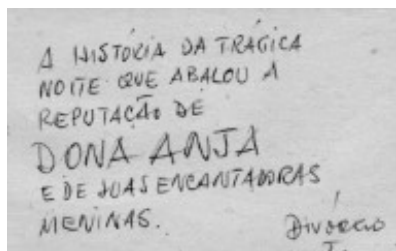 A HISTÓRIA DA TRÁGICA
NOITE QUE ABALOU A
REPUTAÇÃO DE
DONA ANJA
E DE SUAS ENCANTADORAS
MENINAS.
Divórcio